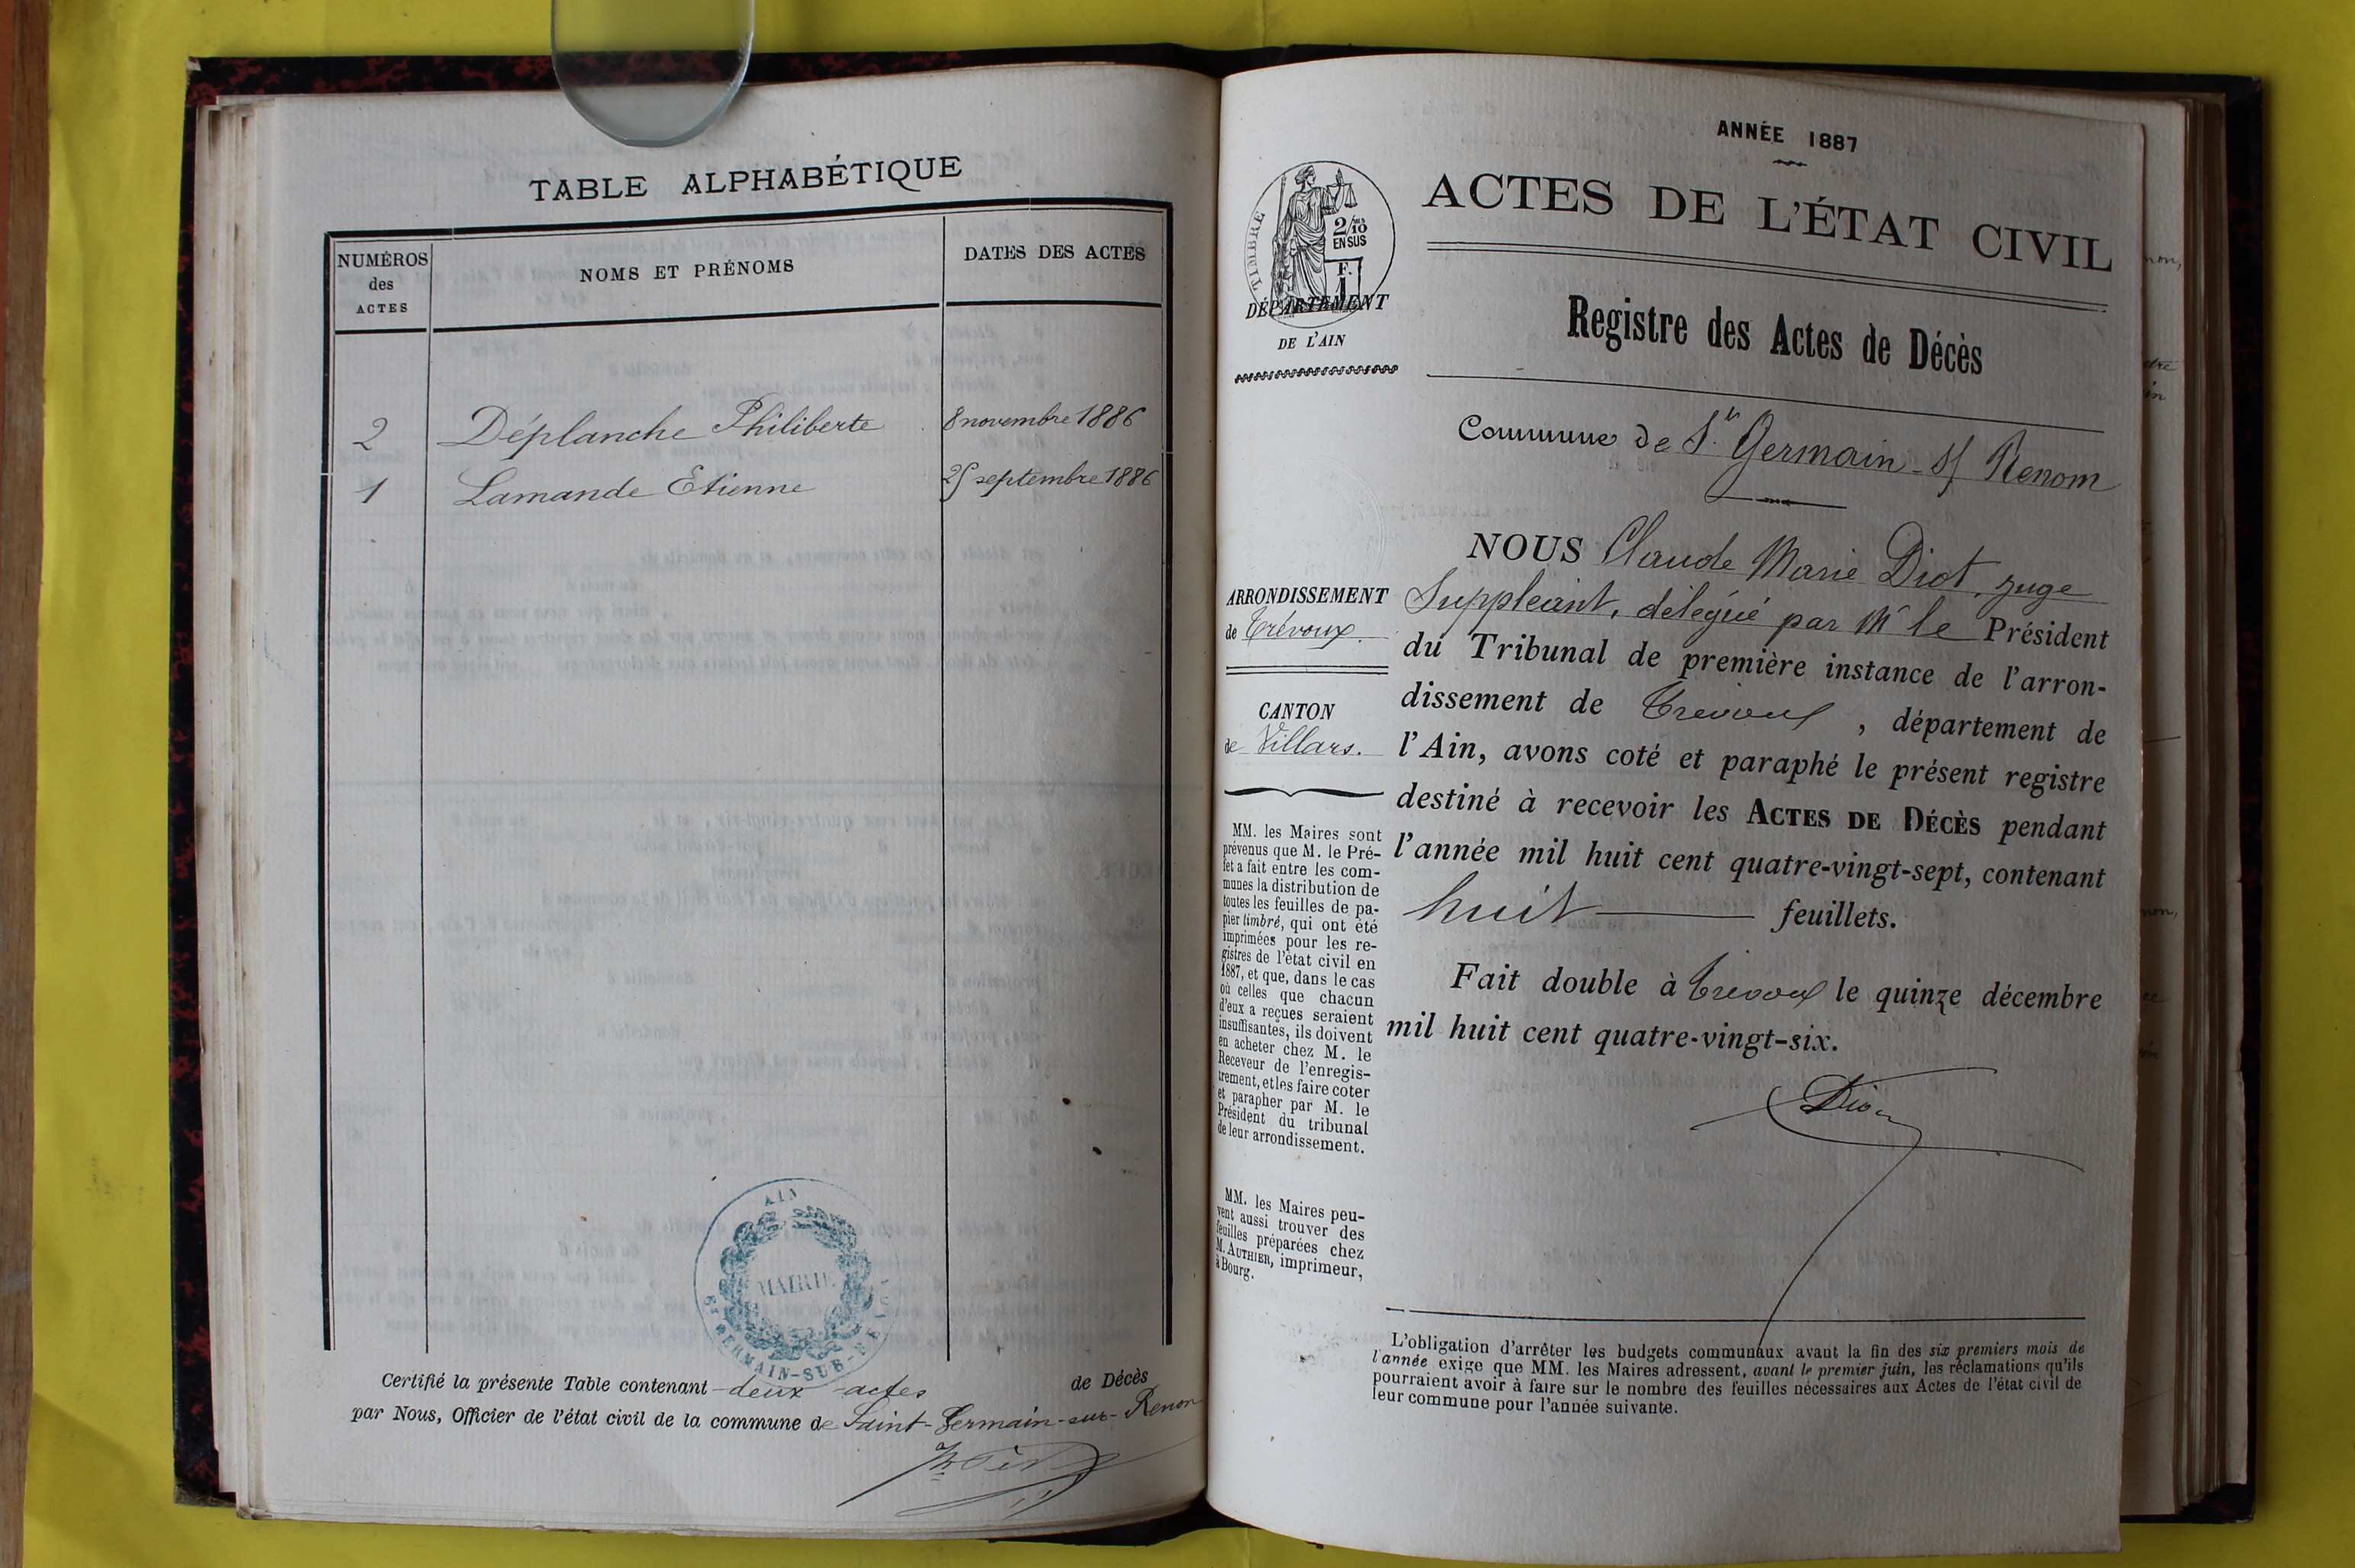 TABLE ALPHABÉTIQUE
NUMÉROS
des
ACTES
NOMS ET PRÉNOMS
DATES DES ACTES
2 Déplanche Philiberte 8 novembre 1886
1 Lamande Etienne 25 septembre 1886
AIN
MAIRIE
St GERMAIN-SUR-
Certifié la présente Table contenant deux actes de Décès
par Nous, Officier de l'état civil de la commune de Saint-Germain-sur-Renon
ANNÉE 1887
ACTES DE L'ÉTAT CIVIL
TIMBRE
2/10
EN SUS
F.
1
DÉPARTEMENT
DE L'AIN
Registre des Actes de Décès
Commune de St. Germain-s/ Renom
ARRONDISSEMENT
de Trévoux.
CANTON
de Villars.
MM. les Maires sont
prévenus que M. le Pré-
fet a fait entre les com-
munes la distribution de
toutes les feuilles de pa-
pier timbré, qui ont été
imprimées pour les re-
gistres de l'état civil en
1887, et que, dans le cas
où celles que chacun
d'eux a reçues seraient
insuffisantes, ils doivent
en acheter chez M. le
Receveur de l'enregis-
trement, et les faire coter
et parapher par M. le
Président du tribunal
de leur arrondissement.
MM. les Maires peu-
vent aussi trouver des
feuilles préparées chez
M. AUTHIER, imprimeur,
à Bourg.
NOUS Claude Marie Diot, juge
Suppléant, délégué par Mr le Président
du Tribunal de première instance de l'arron-
dissement de Trevoux, département de
l'Ain, avons coté et paraphé le présent registre
destiné à recevoir les ACTES DE DÉCÈS pendant
l'année mil huit cent quatre-vingt-sept, contenant
huit feuillets.
Fait double à Trevoux le quinze décembre
mil huit cent quatre-vingt-six.
Diot
L'obligation d'arrêter les budgets communaux avant la fin des six premiers mois de
l'année exige que MM. les Maires adressent, avant le premier juin, les réclamations qu'ils
pourraient avoir à faire sur le nombre des feuilles nécessaires aux Actes de l'état civil de
leur commune pour l'année suivante.